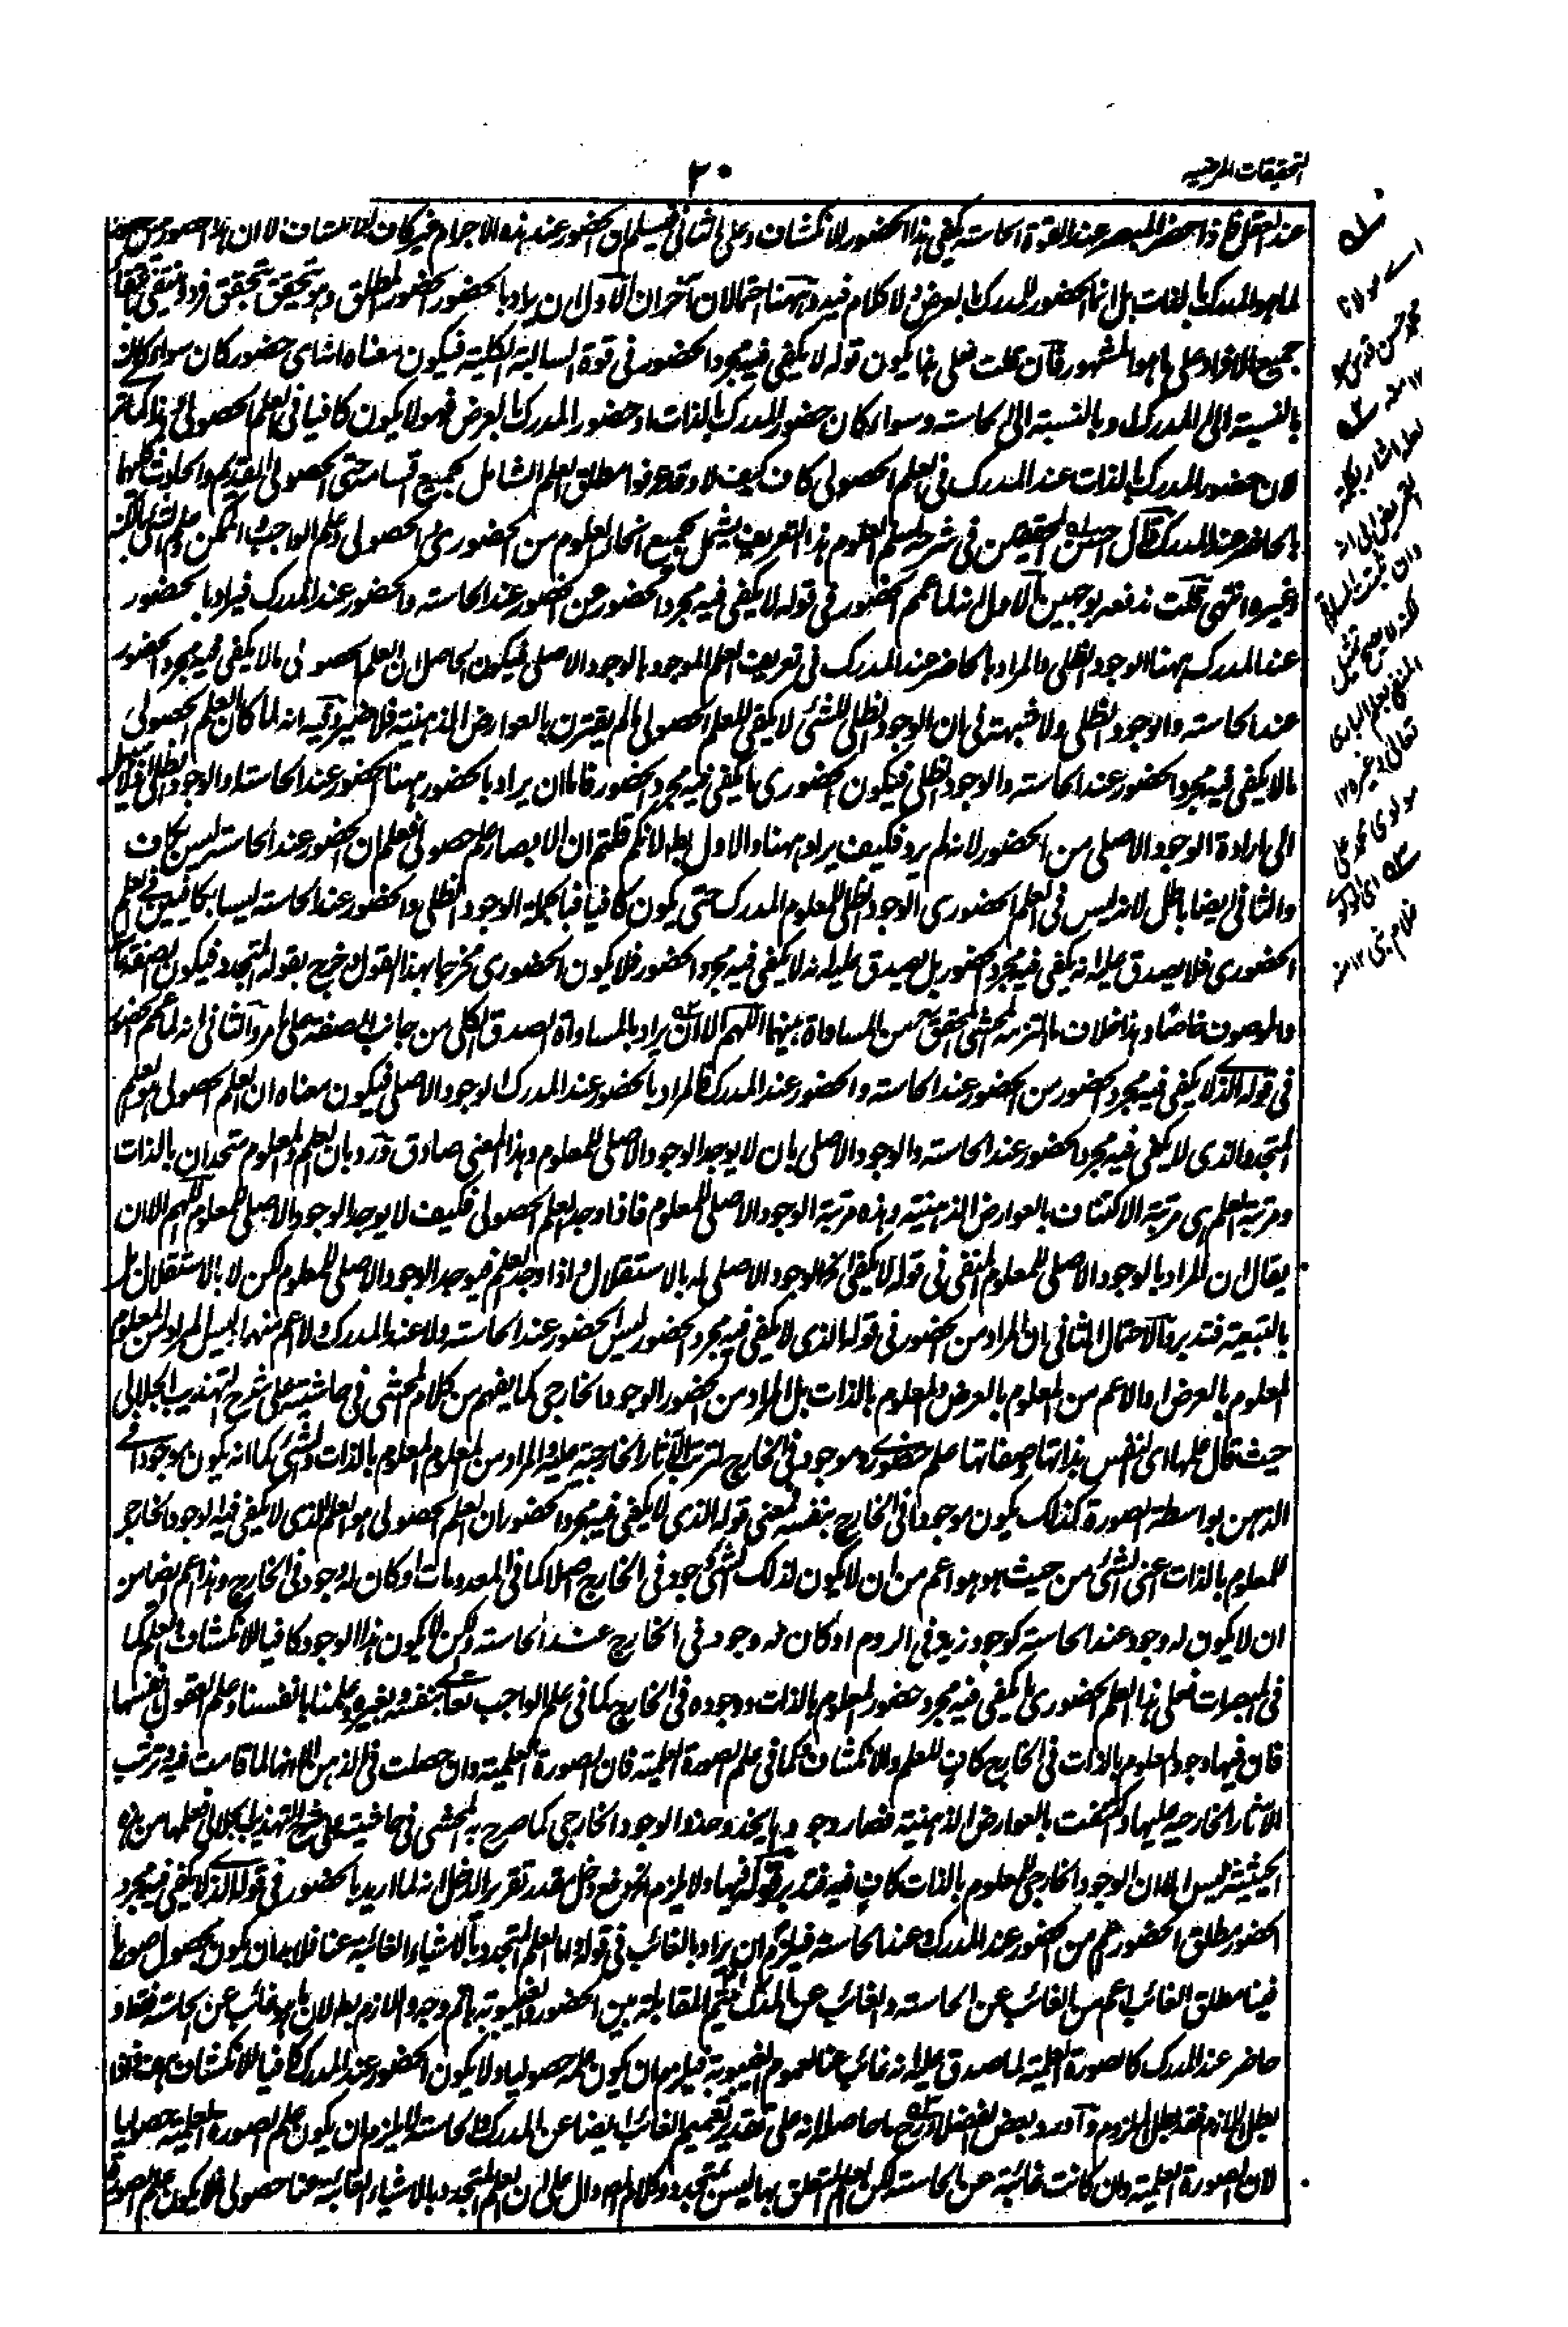 التحقيقات المرضيه
٢٠
عند العقل فاذا حضر المبصر عند القوة الحاسته يكفى هذا الحضور للانكشاف وعلى الثانى فيسلم ان الحضور عند هذه الاجرام غير كاف للانكشاف لا ان هذا حضور
لما هو المدرك بالذات بل انما الحضور للمدرك بالعرض ولا كلام فيه وههنا احتمالان آخران الاول ان يراد بالحضور الحضور المطلق وهو يتحقق بتحقق فرد وينتفى بانتفاء
جميع الافراد على ما هو المشهور فان قلت فعلى هذا يكون قوله لا يكفى فيه مجرد الحضور فى قوة السالبة الكلية فيكون معناه ان اى حضور كان سواء كان
بالنسبة الى المدرك او بالنسبة الى الحاسته وسواء كان حضور المدرك بالذات او حضور المدرك بالعرض فهو لا يكون كافيا فى العلم الحصولى
لان حضور المدرك بالذات عند المدرك فى العلم الحصولى كاف كيف لا وقد عرفوا مطلق العلم الشامل لجميع اقسامه حتى الحصولى القديم والحادث كليهما
بالحاضر عند المدرك قال احسن المحققين فى شرحه لسلم العلوم هذا التعريف يشمل لجميع انحاء العلوم من الحضورى والحصولى وعلم الواجب والممكن وعلم الشئ بالكنه
وغيره انتهى قلت ندفعه بوجهين الاول انه لما عمم الحضور فى قوله لا يكفى فيه مجرد الحضور من الحضور عند الحاسته والحضور عند المدرك فيراد بالحضور
عند المدرك ههنا الوجود الظلى والمراد بالحاضر عند المدرك فى تعريف العلم الموجود بالوجود الاصلى فيكون الحاصل ان العلم الحصولى ما لا يكفى فيه مجرد الحضور
عند الحاسته والوجود الظلى ولا شبهة فى ان الوجود الظلى للشئ لا يكفى للعلم الحصولى ما لم يقترن بالعوارض الذهنية فلا ضير وفيه انه لما كان العلم الحصولى
ما لا يكفى فيه مجرد الحضور عند الحاسته والوجود الظلى فيكون الحضورى ما يكفى فيه مجرد الحضور فاما ان يراد بالحضور ههنا الحضور عند الحاسته او الوجود الظلى فلا سبيل
الى ارادة الوجود الاصلى من الحضور لانه لم يرد فكيف يراد ههنا والاول باطل لانكم قلتم ان الابصار علم حصولى فعلم ان الحضور عند الحاسته ليس بكاف
والثانى ايضا باطل لانه ليس فى العلم الحضورى الوجود الظلى للمعلوم المدرك حتى يكون كافيا فبالجملة الوجود الظلى والحضور عند الحاسته ليسا بكافيين فى العلم
الحضورى فلا يصدق عليه انه يكفى فيه مجرد الحضور بل يصدق عليه انه لا يكفى فيه مجرد الحضور فلا يكون الحضورى مخرجا بهذا القول وخرج بقوله المتجدد فيكون الصفة
والموصوف خاصا وهذا خلاف ما التزمه المحشى المحقق من المساواة بينهما اللهم الا ان يراد بالمساواة الصدق الكلى من جانب الصفة على ما مر والثانى انه لما عمم الحضور
فى قوله الذى لا يكفى فيه مجرد الحضور من الحضور عند الحاسته والحضور عند المدرك فالمراد بالحضور عند المدرك الوجود الاصلى فيكون معناه ان العلم الحصولى هو العلم
المتجدد الذى لا يكفى فيه مجرد الحضور عند الحاسته والوجود الاصلى بان لا يوجد الوجود الاصلى للمعلوم وهذا المعنى صادق ورد بان العلم والمعلوم متحدان بالذات
ومرتبة العلم هى مرتبة الاكتناف بالعوارض الذهنية وهذه مرتبة الوجود الاصلى للمعلوم فاذا وجد العلم الحصولى فكيف لا يوجد الوجود الاصلى للمعلوم اللهم الا ان
يقال ان المراد بالوجود الاصلى للمعلوم المنفى فى قوله لا يكفى الخ الوجود الاصلى له بالاستقلال واذا وجد العلم فيوجد الوجود الاصلى للمعلوم لكن لا بالاستقلال بل
بالتبعية فتدبر والاحتمال الثانى ان المراد من الحضور فى قوله الذى لا يكفى فيه مجرد الحضور ليس الحضور عند الحاسته ولا عند المدرك ولا اعم منهما وليس المراد من المعلوم
المعلوم بالعرض او الاعم من المعلوم بالعرض والمعلوم بالذات بل المراد من الحضور الوجود الخارجى كما يفهم من كلام المحشى فى حاشيته على شرح التهذيب الجلالى
حيث قال علمها اى النفس بذاتها وصفاتها علم حضورى وموجود فى الخارج لترتب الآثار الخارجية عليه والمراد من المعلوم المعلوم بالذات والشئ كما انه يكون موجودا فى
الذهن بواسطة الصورة كذلك يكون موجودا فى الخارج بنفسه فمعنى قوله الذى لا يكفى فيه مجرد الحضور ان العلم الحصولى هو العلم الذى لا يكفى فيه الوجود الخارجى
للمعلوم بالذات اعنى الشئ من حيث هو هو اعم من ان لا يكون لذلك الشئ وجود فى الخارج اصلا كما فى المعدومات او كان له وجود فى الخارج وهذا اعم ايضا من
ان لا يكون له وجود عند الحاسته كوجود زيد فى الروم او كان له وجود فى الخارج عند الحاسته ولكن لا يكون هذا الوجود كافيا للانكشاف والعلم كما
فى المبصرات فعلى هذا العلم الحضورى ما يكفى فيه مجرد حضور المعلوم بالذات ووجوده فى الخارج كما فى علم الواجب تعالى بنفسه وبغيره وعلمنا بانفسنا وعلم العقول بانفسها
فان فيها وجود المعلوم بالذات فى الخارج كاف للعلم والانكشاف وكما فى علم الصورة العلمية فان الصورة العلمية وان حصلت فى الذهن الا انها لما قامت فيه وترتب
الآثار الخارجيه عليها واكتنفت بالعوارض الذهنية فصار وجودها يحذو حذو الوجود الخارجى كما صرح به المحشى فى حاشيته على شرح التهذيب الجلالى فعلمها من هذه
الحيثية ليس الا لان الوجود الخارجى للمعلوم بالذات كاف فيه فتدبر قوله فيها ولا يلزم الخ دفع دخل مقدر تقرير الدخل انه لما اريد بالحضور فى قوله الذى لا يكفى فيه مجرد
الحضور مطلق الحضور اعم من الحضور عند المدرك وعند الحاسته فيلزم ان يراد بالغائب فى قوله واما العلم المتجدد بالاشياء الغائبة عنا فلا بد ان يكون بحصول صورها
فينا مطلق الغائب اعم من الغائب عن الحاسته والغائب عن المدرك ليتم المقابلة بين الحضور والغيبوبة باتم وجه واللازم باطل لان ما هو غائب عن الحاسته فقط و
حاضر عند المدرك كالصورة العلمية لما صدق عليه انه غائب عنا لعموم الغيبوبة فيلزم ان يكون علمه حصوليا ولا يكون الحضور عند المدرك كافيا للانكشاف
بطل اللازم فقد بطل الملزوم واورد بعض الفضلاء ما حاصله انه على تقدير تعميم الغائب ايضا عن المدرك والحاسته لا يلزم ان يكون علم الصورة العلمية حصوليا
لان الصورة العلمية وان كانت غائبة عن الحاسته لكن العلم المتعلق بها ليس بمتجدد وكلام المص دال على ان العلم المتجدد بالاشياء الغائبة عنا حصولى فلا يكون علم الصورة
محمد حسن
تعالى وغيره ١٢
مولوى محمد